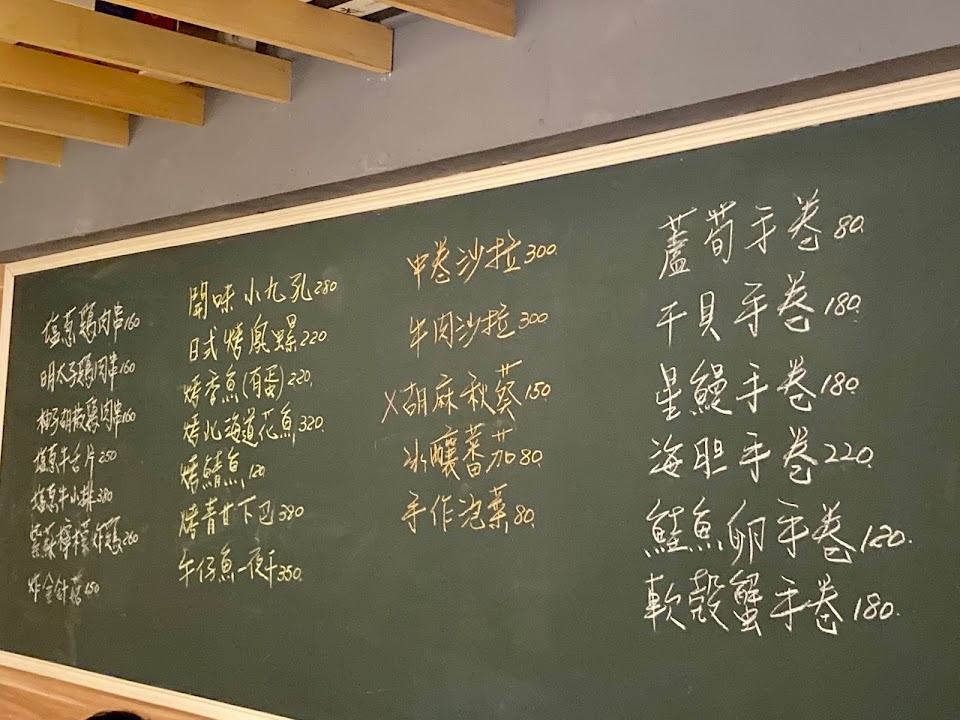 塩蔥鷄肉串160
明太子鷄肉串160
柚子胡椒鷄肉串160
塩蔥牛舌片250
塩蔥牛小排380
紫蘇檸檬炸鷄260
炸金針菇150
開味小九孔280
日式烤鳳螺220
烤香魚(有蛋)220.
烤北海道花魚320.
烤鯖魚120
烤青甘下巴380
午仔魚一夜干350.
中卷沙拉300.
牛肉沙拉300
X胡麻秋葵150
冰釀蕃茄80.
手作泡菜80.
蘆荀手卷80.
干貝手卷180.
星鰻手卷180
海胆手卷220.
鮭魚卵手卷120.
軟殼蟹手卷180.